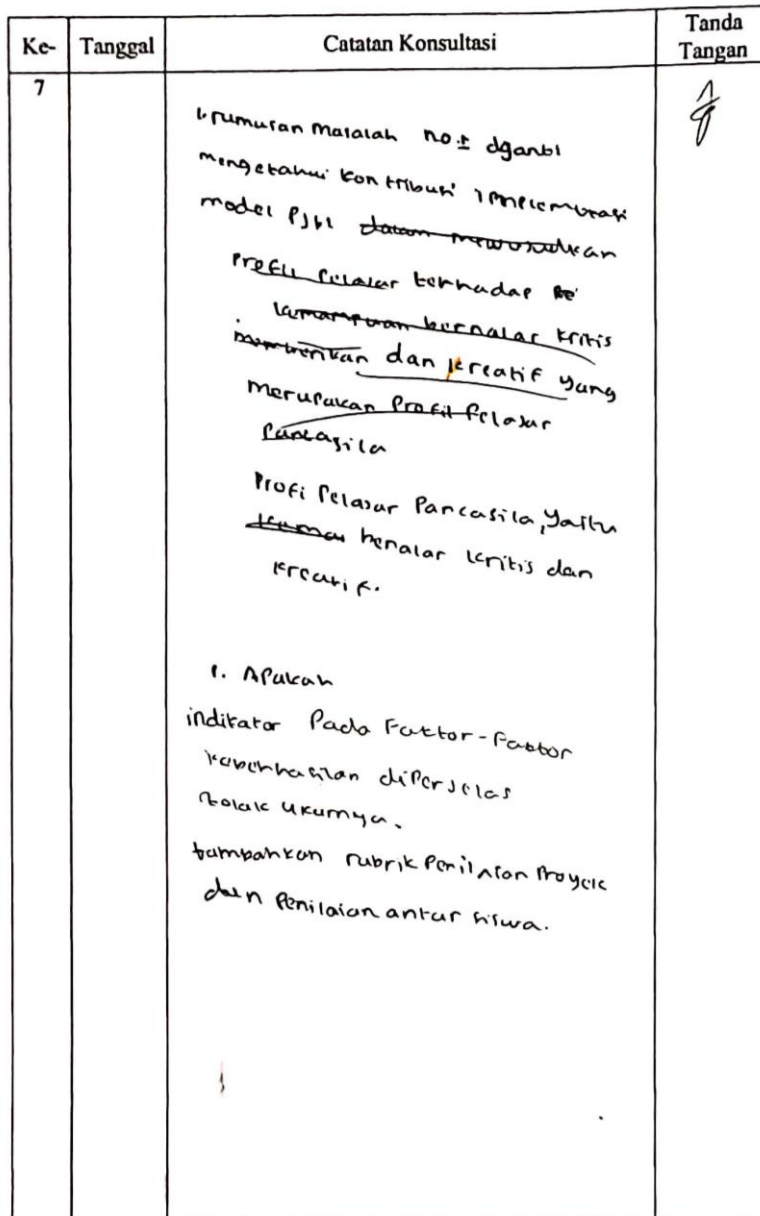 Ke- Tanggal Catatan Konsultasi Tanda Tangan
7
1. rumusan masalah no. 1 dganti
mengetahui kontribusi implementasi
model PJBL dalam mewujudkan
Profil Pelajar terhadap ke
kemampuan bernalar kritis
memberikan dan kreatif yang
merupakan Profil Pelajar
Pancasila
Profi Pelajar Pancasila, yaitu
benalar kritis dan
kreatif.
1. Apakah
indikator Pada Faktor-Faktor
keberhasilan diperjelas
tolak ukurnya.
tambahkan rubrik Penilaian Proyek
dan Penilaian antar siswa.